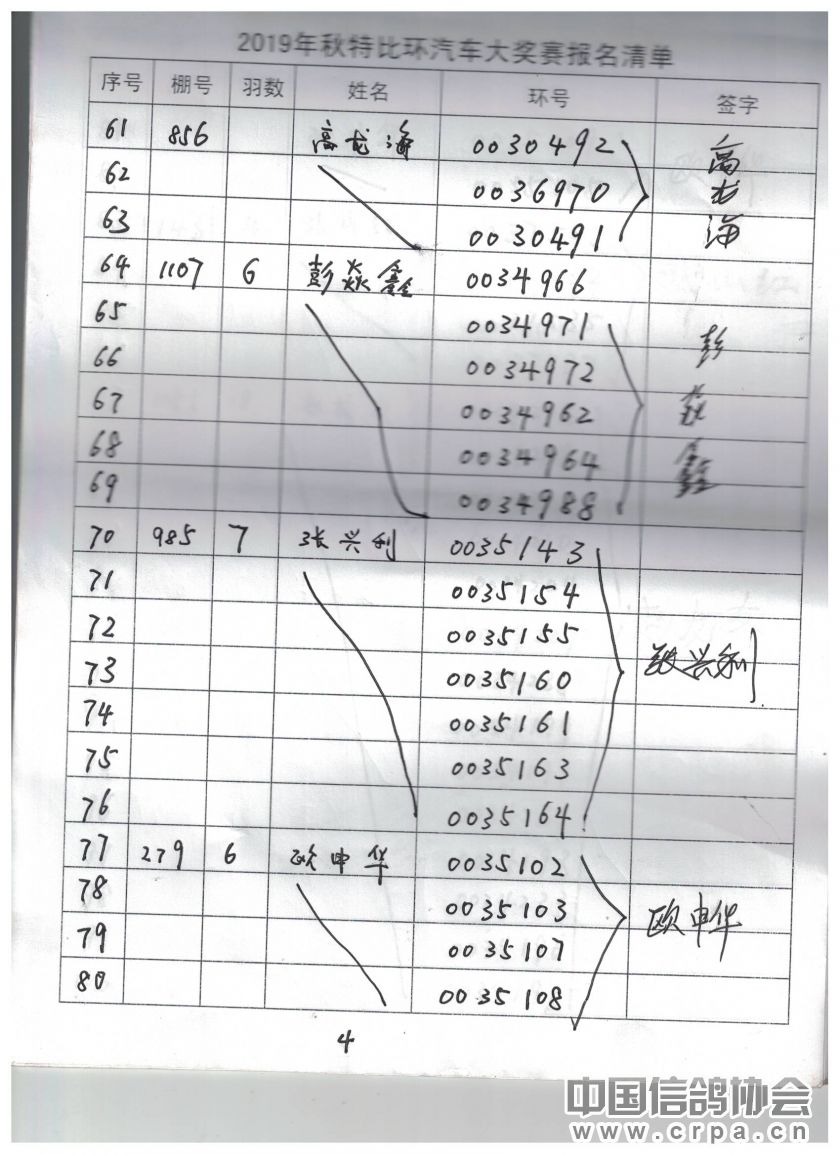 2019年秋特比环汽车大奖赛报名清单
序号 棚号 羽数 姓名 环号 签字
61 856 高龙海 0030492 高龙海
62 0036970
63 0030491
64 1107 6 彭焱鑫 0034966
65 0034971 彭焱鑫
66 0034972
67 0034962
68 0034964
69 0034988
70 985 7 张兴利 0035143
71 0035154
72 0035155
73 0035160 张兴利
74 0035161
75 0035163
76 0035164
77 279 6 欧申华 0035102
78 0035103 欧申华
79 0035107
80 0035108
4
中国信鸽协会
www.crpa.cn